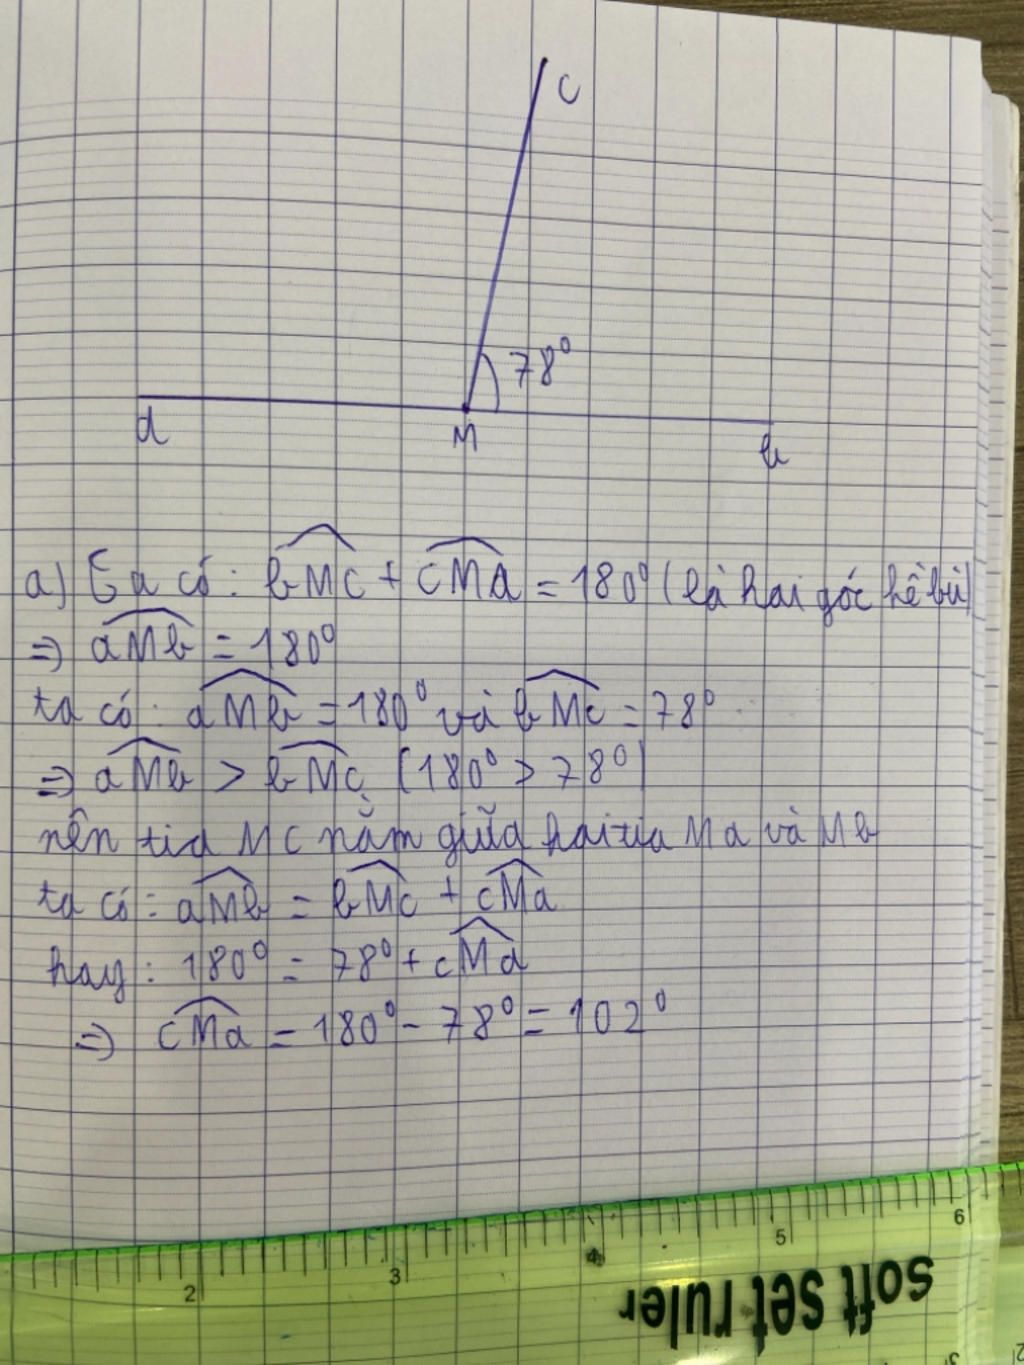 C
78°
a
M
b
a) Ta có: bMc + cMa = 180° (là hai góc kề bù)
=> aMb = 180°
ta có: aMb = 180° và bMc = 78°
=> aMb > bMc (180° > 78°)
nên tia MC nằm giữa hai tia Ma và Mb
ta có: aMb = bMc + cMa
hay: 180° = 78° + cMa
=> cMa = 180° - 78° = 102°
2 3 4 5 6
soft set ruler